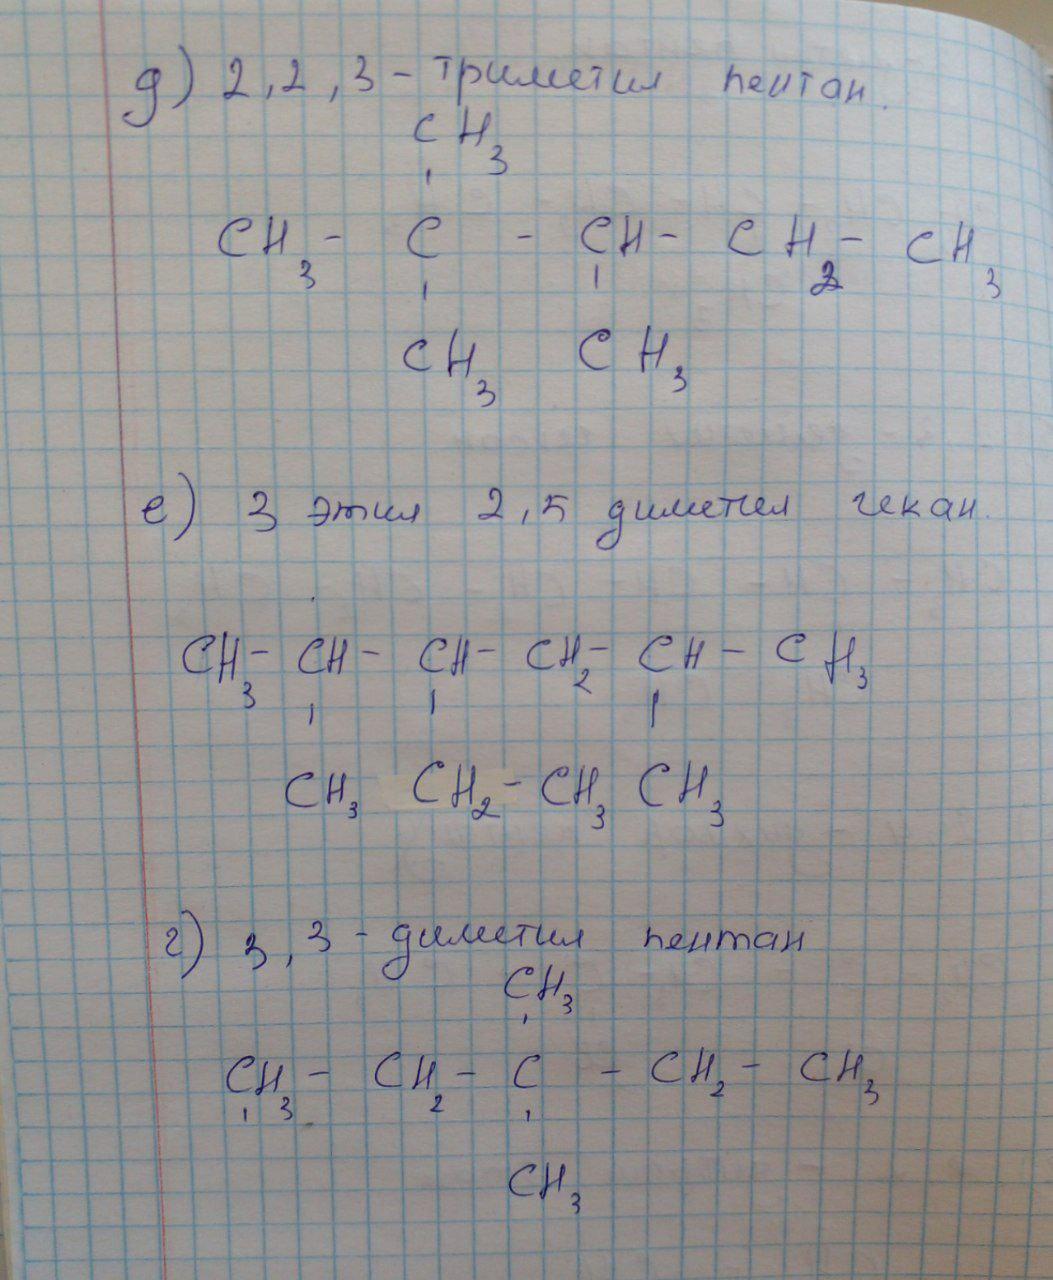 д) 2,2,3 - триметил пентан.
CH3
CH3 - C - CH - CH2 - CH3
CH3 CH3
е) 3 этил 2,5 диметил гекан.
CH3 - CH - CH - CH2 - CH - CH3
CH3 CH2 - CH3 CH3
г) 3,3 - диметил пентан
CH3
CH3 - CH2 - C - CH2 - CH3
CH3